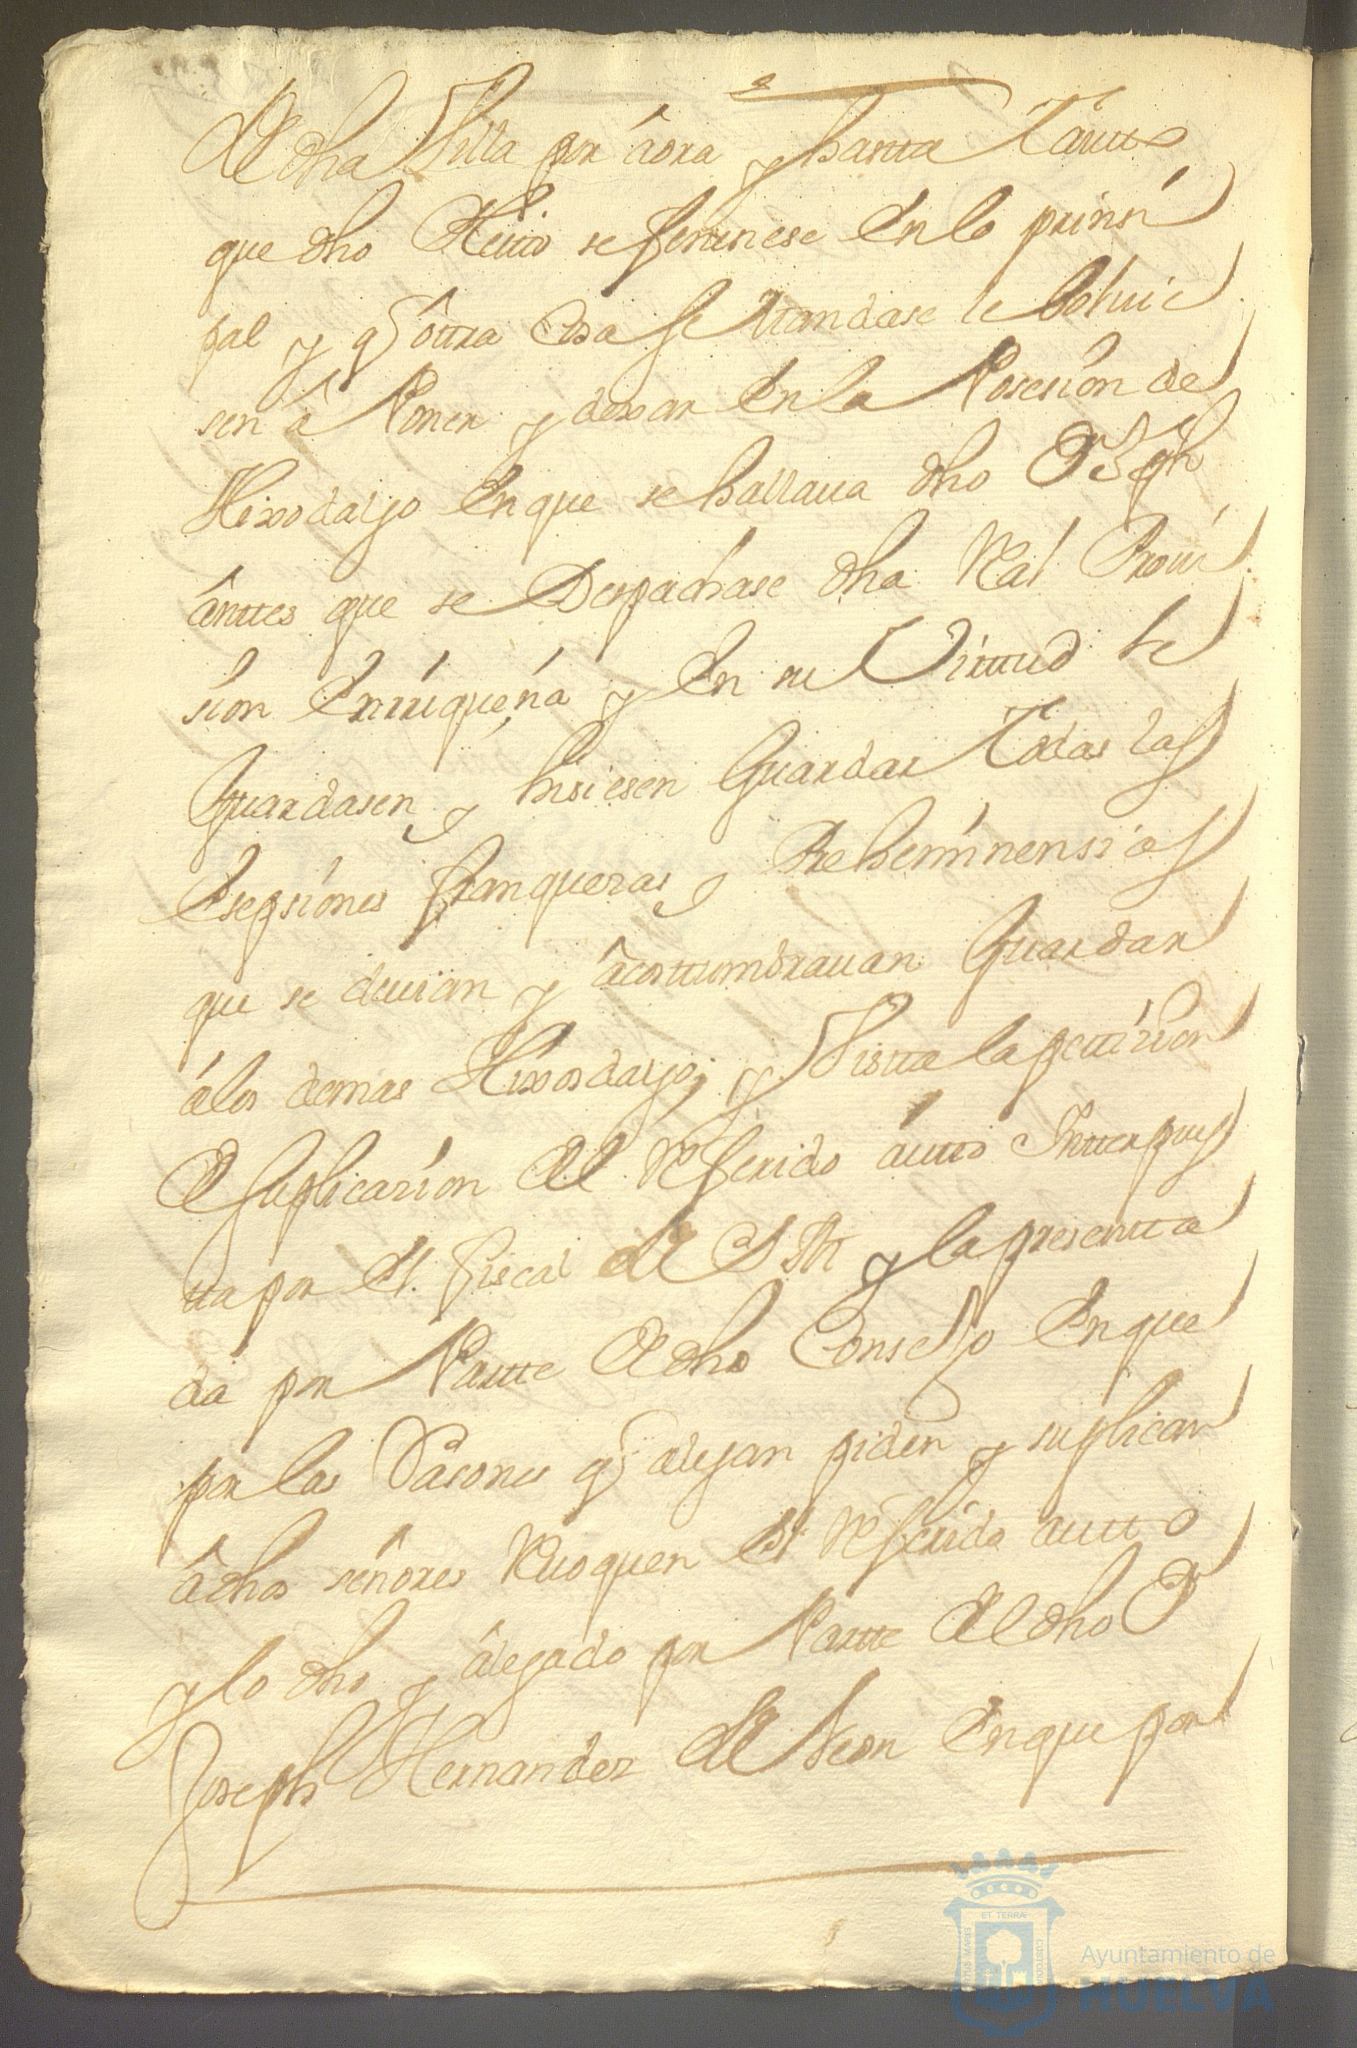 de dha Villa por áora y hasta tantto
que dho Pleitto se feneciese en lo prinsi
pal y q̃ ôttra Cosa se Mandase le bolvie
sen â Poner y dexar en la Posesion de
Hixodalgo en que se hallaua dho D Jph
ânttes que se Despachase dha Real Provi
sion Enrriqueña y en su Virttud le
Guardasen y hisiesen Guardar Todas las
Esepsiones franquezas y Prehemínensias
que se devian y âcosttumbrauan Guardar
álos demas Hixosdalgo; y Vistta la pettizion
de suplicazíon del Referido áutto Intterpues
tta por el fiscal de S M y la presentta
da por Partte de dho Consejo en que
por las Rasones q̃ alegan piden y suplican
â dhos señores Reuoquen el Referido autto
y lo dho y álegado por Partte del dho D
Joseph Hernandez de Leon en que por
ET TERRÆ
Ayuntamiento de
HUELVA